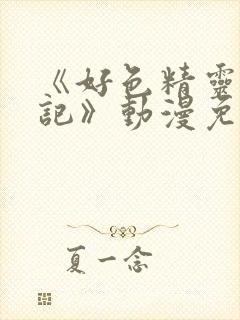 《好色精靈
記》動漫免
夏一念